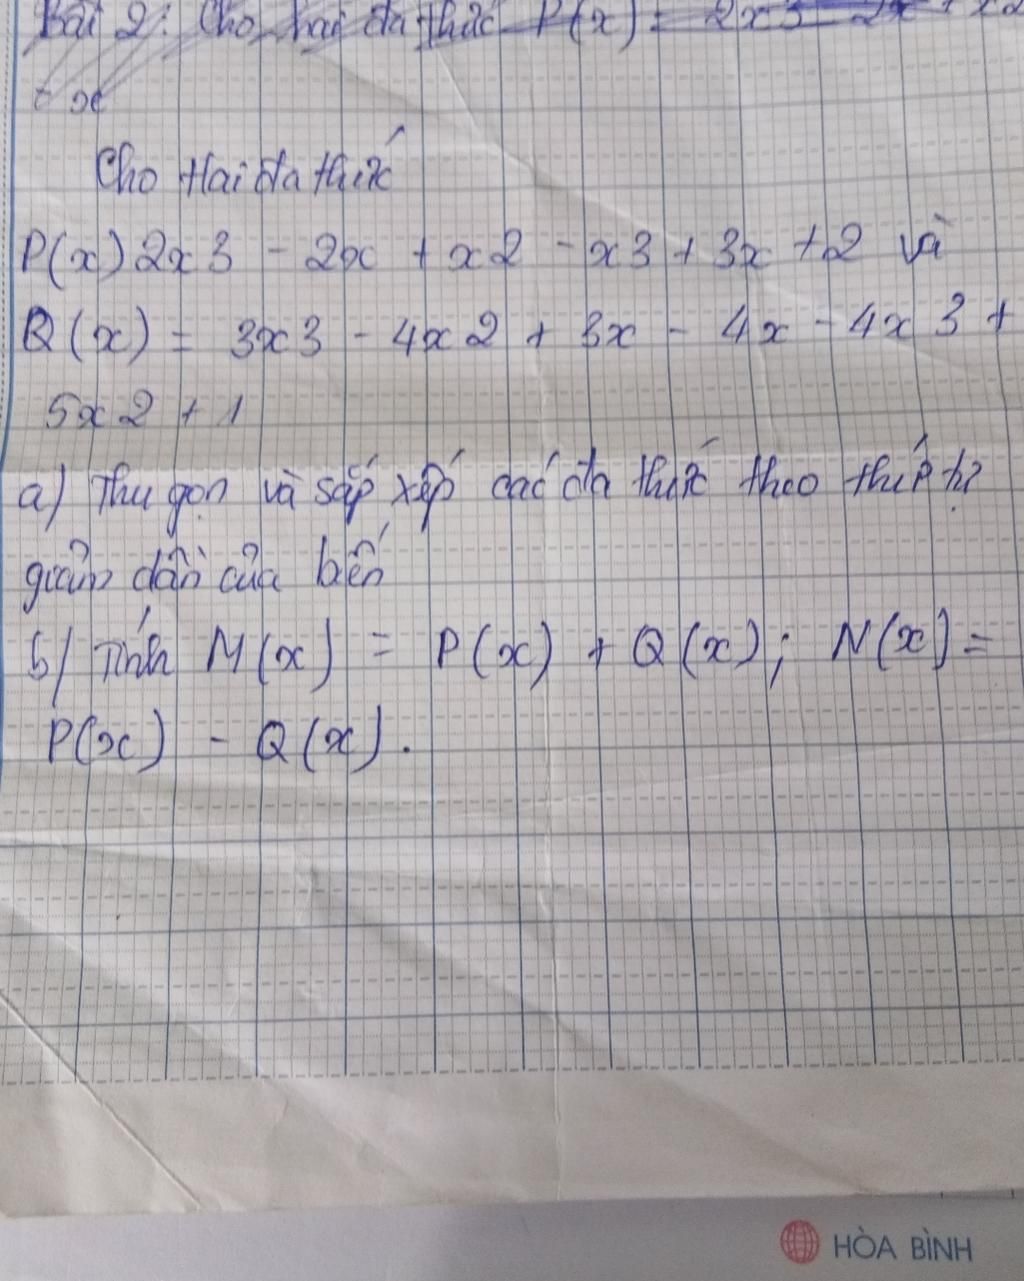 Bài 2: Cho hai đa thức P(x) = 2x3 - 2x + x2
+ x
Cho Hai đa thức
P(x) 2x3 - 2x + x2 - x3 + 3x + 2 và
Q(x) = 3x3 - 4x2 + 3x - 4x - 4x3 +
5x2 + 1
a) Thu gọn và sắp xếp các đa thức theo
giảm dần của biến
b) Tính M(x) = P(x) + Q(x); N(x) =
P(x) - Q(x).
HÒA BÌNH